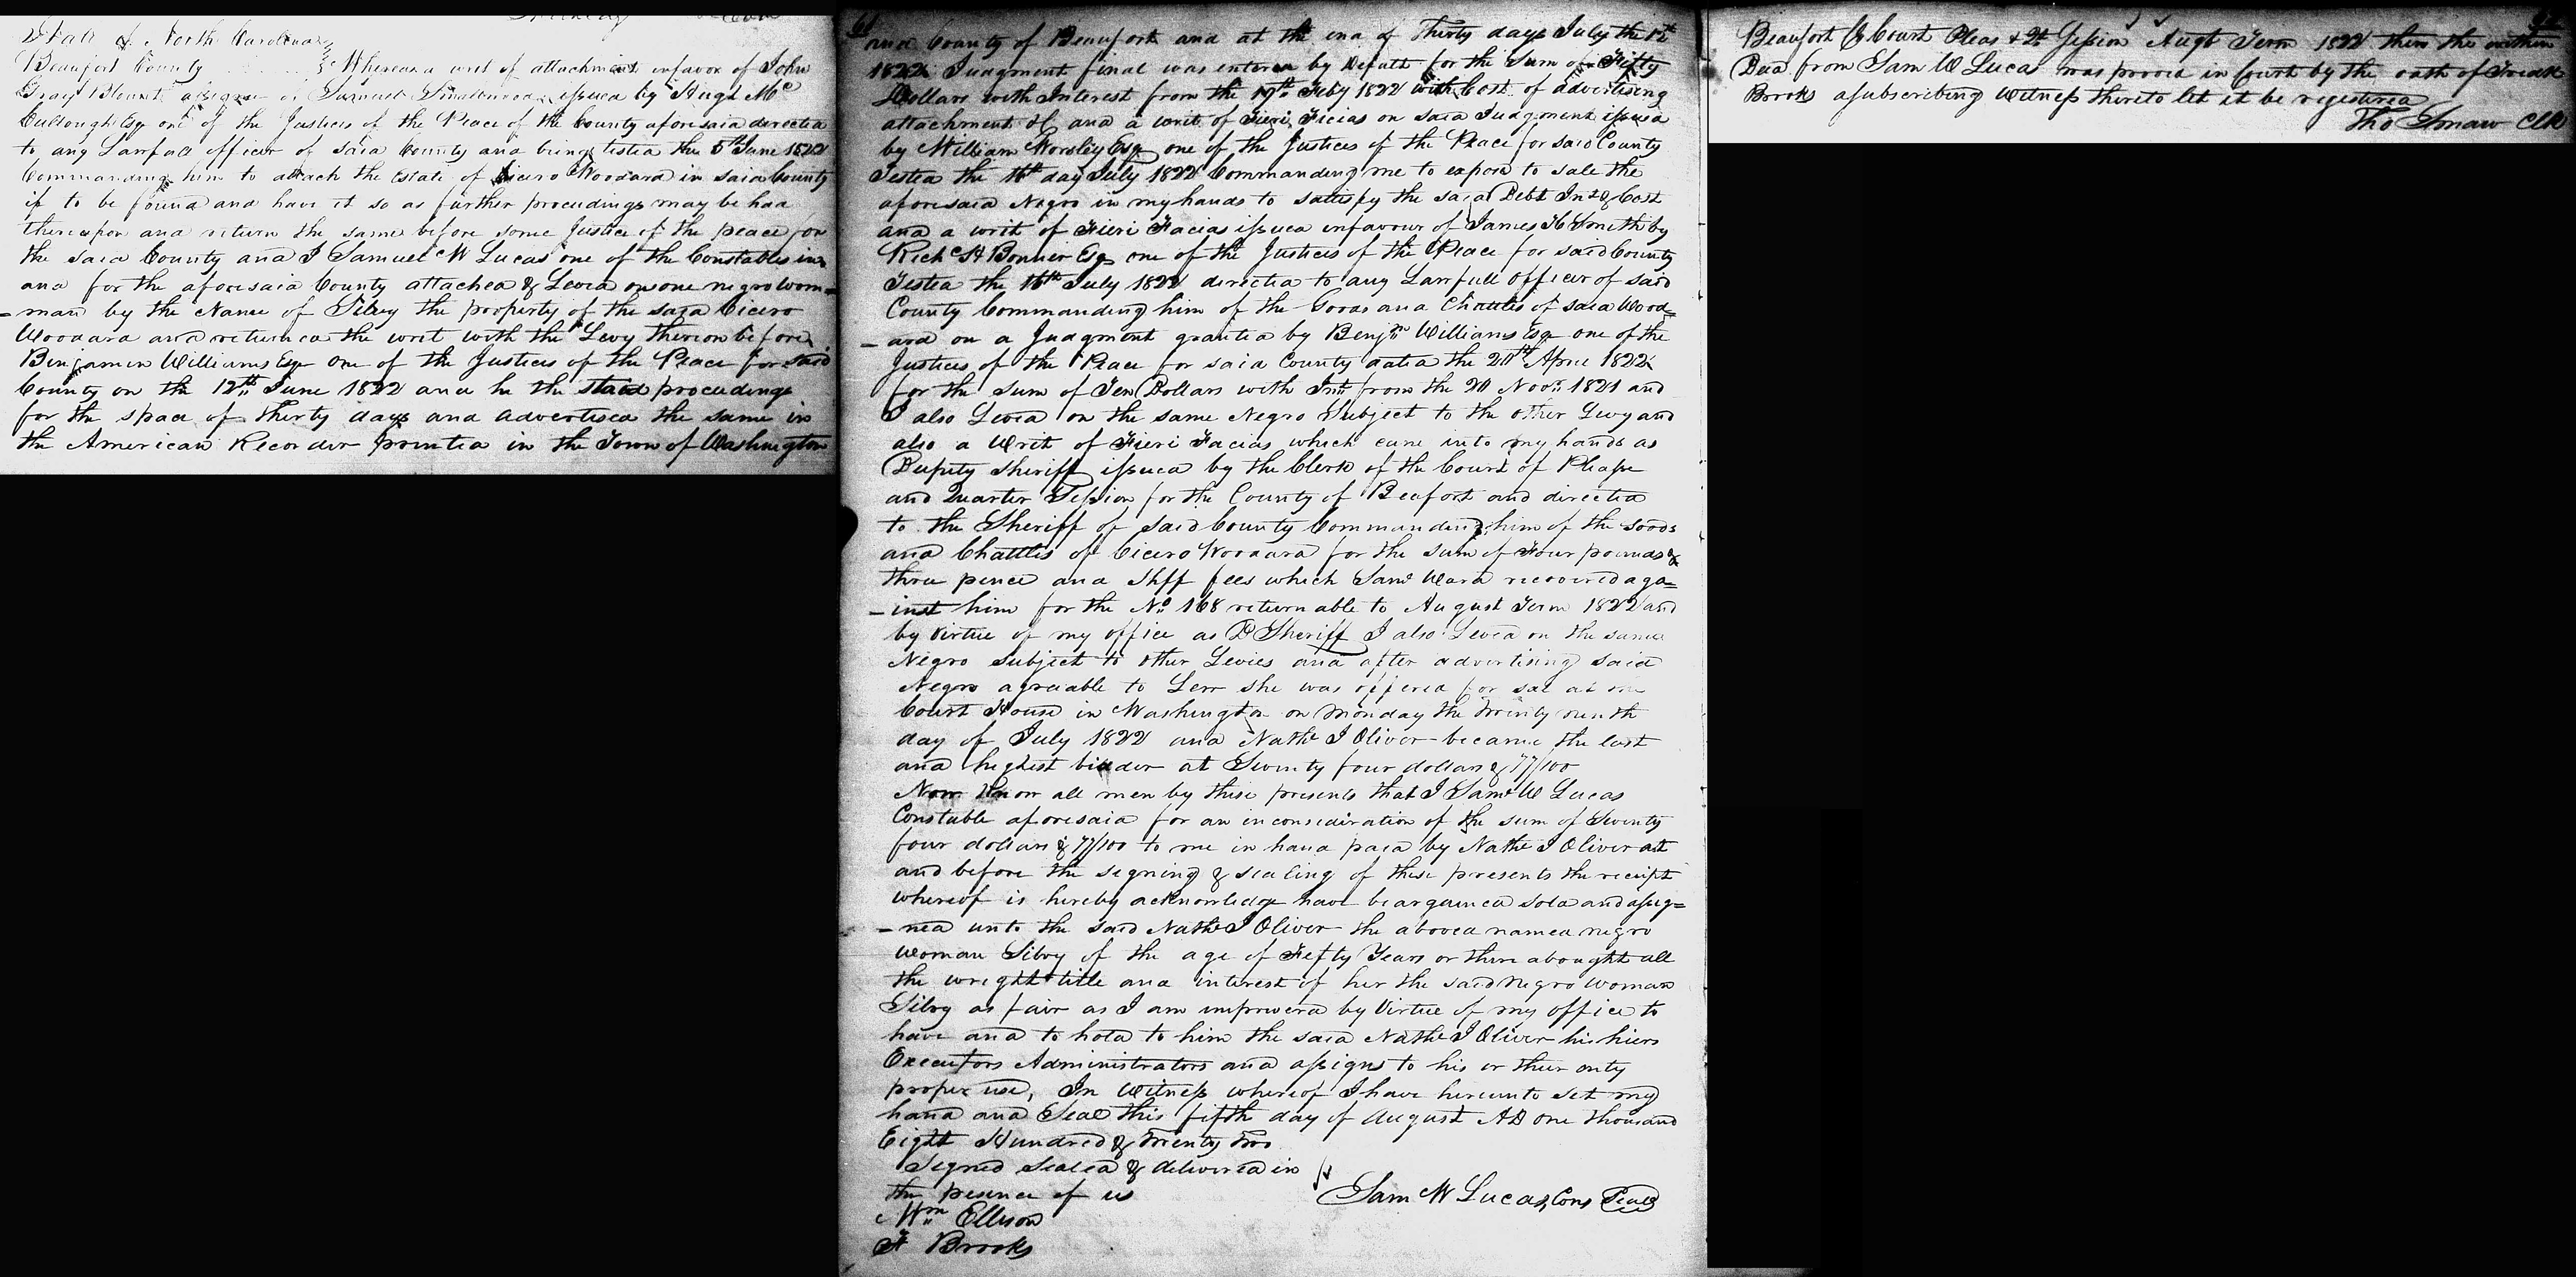 State of North Carolina
Beaufort County Whereas a writ of attachment infavor of John
Gray Blount assignee of Samuel Smallwood issued by Hugh Mc
Cullough Esq one of the Justices of the Peace of the County aforesaid directed
to any Lawfull officer of said County and being tested the 5th June 1822
Commanding him to attach the Estate of Cicero Woodard in said County
if to be found and have it so as further proceedings may be had
thereupon and return the same before some Justice of the peace for
the said County and I Samuel W Lucas one of the Constables in
and for the aforesaid County attached & Levied on one negro wom=
-man by the Name of Silvy the property of the said Cicero
Woodard and returned the writ with the Levy thereon before
Benjamin Williams Esqr one of the Justices of the Peace for said
County on the 12th June 1822 and he the staid proceedings
for the space of Thirty days and advertised the same in
the American Recorder printed in the Town of Washington
61
and County of Beaufort and at the end of Thirty days July the
1822 Judgment final was entered by Default for the Sum of Fifty
Dollars with Interest from the 19th Feby 1822 with Cost of advertising
attachment &c and a writ of Fieri Ficias on said Judgment issued
by William Worsley Esq one of the Justices of the Peace for said County
Tested the 16th day July 1822 Commanding me to expose to sale the
aforesaid Negro in my hands to satisfy the said Debt Int & Cost
and a writ of Fieri Facias issued infavour of James H Smith by
Rich H Bonner Esq one of the Justices of the Peace for said County
Tested the 16th July 1822 directed to any Lawfull officer of said
County Commanding him of the Goods and Chattles of said Wood=
-ard on a Judgment granted by Benjn Williams Esqr one of the
Justices of the Peace for said County dated the 20th April 1822
for the sum of Ten Dollars with Intt from the 20 Novr 1821 and
I also Levied on the same Negro Subject to the other Levy and
also a Writ of Fieri Facias which came into my hands as
Deputy Sheriff issued by the Clerk of the Court of Pleasse
and Quarter Session for the County of Beafort and directed
to the Sheriff of said County Commanding him of the Goods
and Chattles of Cicero Woodard for the sum of Four pounds &
three pence and Shff fees which Saml Ward recovered aga=
-inst him for the No 168 returnable to August Term 1822 and
by Virtue of my office as D Sheriff I also Levied on the same
Negro subject to other Levies and after advertising said
Negro agreable to Law she was offered for sale at the
Court House in Washington on Monday the Twenty nineth
day of July 1822 and Nathl J Oliver became the last
and highest bidder at Seventy four dollars & 77/100
Now Know all men by these presents that I Saml W Lucas
Constable aforesaid for an inconsidiration of the sum of Seventy
four dollars & 77/100 to me in hand paid by Nathl J Oliver at
and before the signing & sealing of these presents the receipt
whereof is hereby acknowledge have beargained sold and assig=
-ned unto the said Nathl J Oliver the aboved named negro
woman Silvy of the age of Fefty Years or there abought all
the wright title and interest of her the said Negro woman
Silvy as fair as I am impowered by Virtue of my office to
have and to hold to him the said Nathl J Oliver his hiers
Executors Administrators and assigns to his or their only
proper use, In Witness whereof I have hereunto set my
hand and Seal this fifth day of August AD one thousand
Eight Hundred & Twenty Two
Signed Sealed & delivered in
the presence of us
Sam W Lucas, Cons Seal
Wm Ellison
F Brooks
Beaufort Co Court Pleas & Qt Session Augt Term 1822 then the within
Deed from Sam W Lucas was proved in Court by the oath of Fredk
Brooks a subscribing Witness thereto let it be registered
Tho Smaw Clk